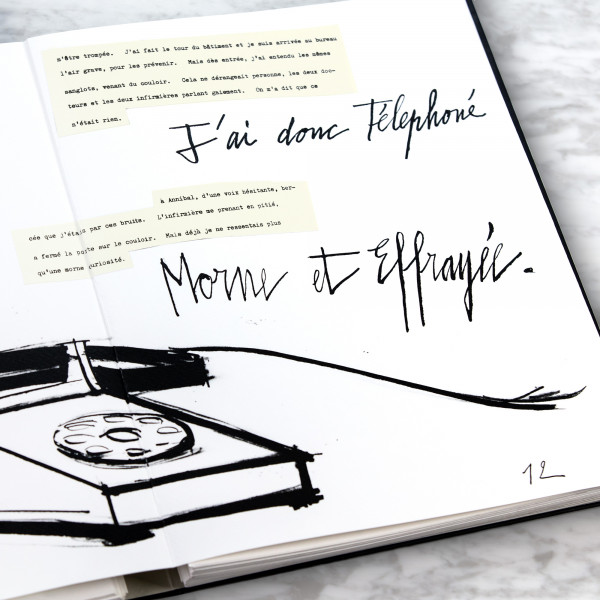 s'être trompée. J'ai fait le tour du bâtiment et je suis arrivée au bureau
l'air grave, pour les prévenir. Mais dès entrée, j'ai entendu les mêmes
sanglots, venant du couloir. Cela ne dérangeait personne, les deux doc-
teurs et les deux infirmières parlant gaiement. On m'a dit que ce
n'était rien.
J'ai donc Téléphoné
à Annibal, d'une voix hésitante, ber-
cée que j'étais par ces bruits. L'infirmière me prenant en pitié,
a fermé la porte sur le couloir. Mais déjà je ne ressentais plus
qu'une morne curiosité.
Morne et Effrayée.
12